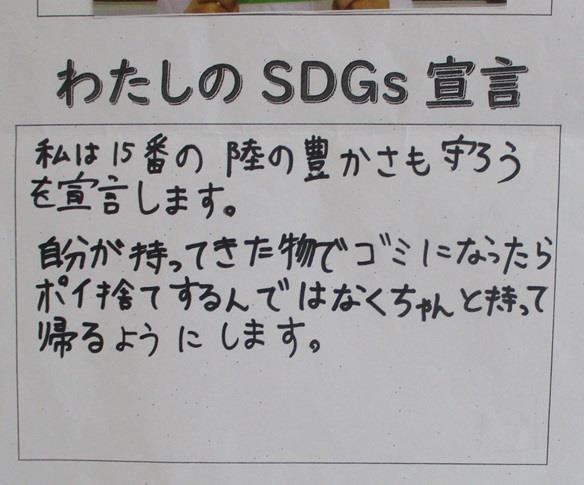 わたしの SDGs 宣言
私は15番の 陸の豊かさも守ろう
を宣言します。
自分が持ってきた物でゴミになったら
ポイ捨てするんではなくちゃんと持って
帰るようにします。